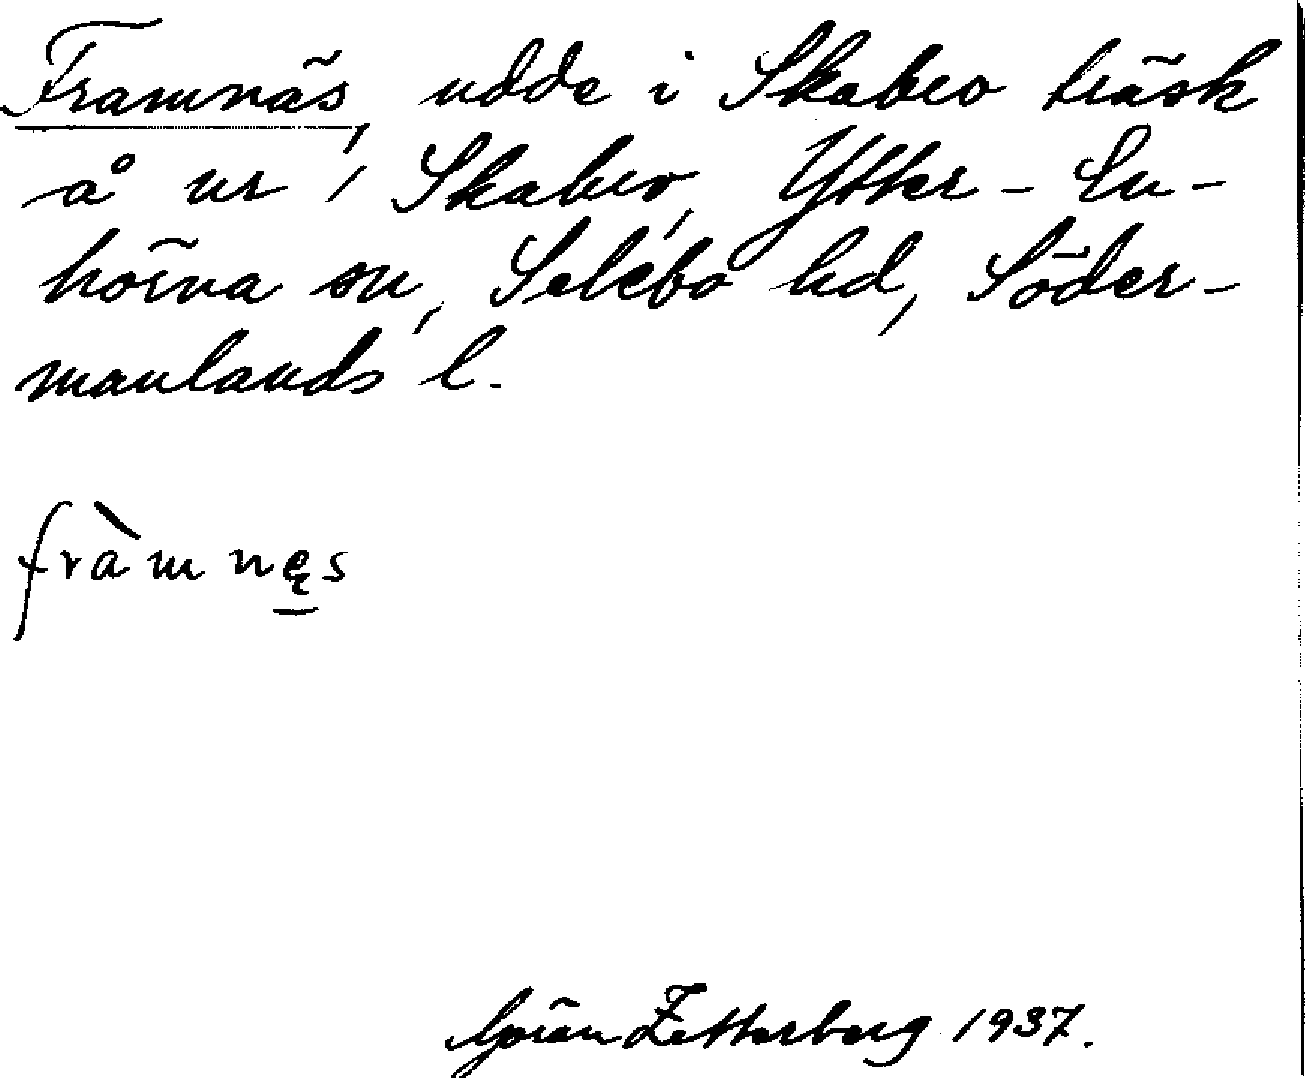 Framnäs, udde i Skabro träsk
å nr 1 Skabro, Ytter-En-
hörna sn, Selebo hd, Söder-
manlands l.
fràmnęs
Göran Zetterberg 1937.